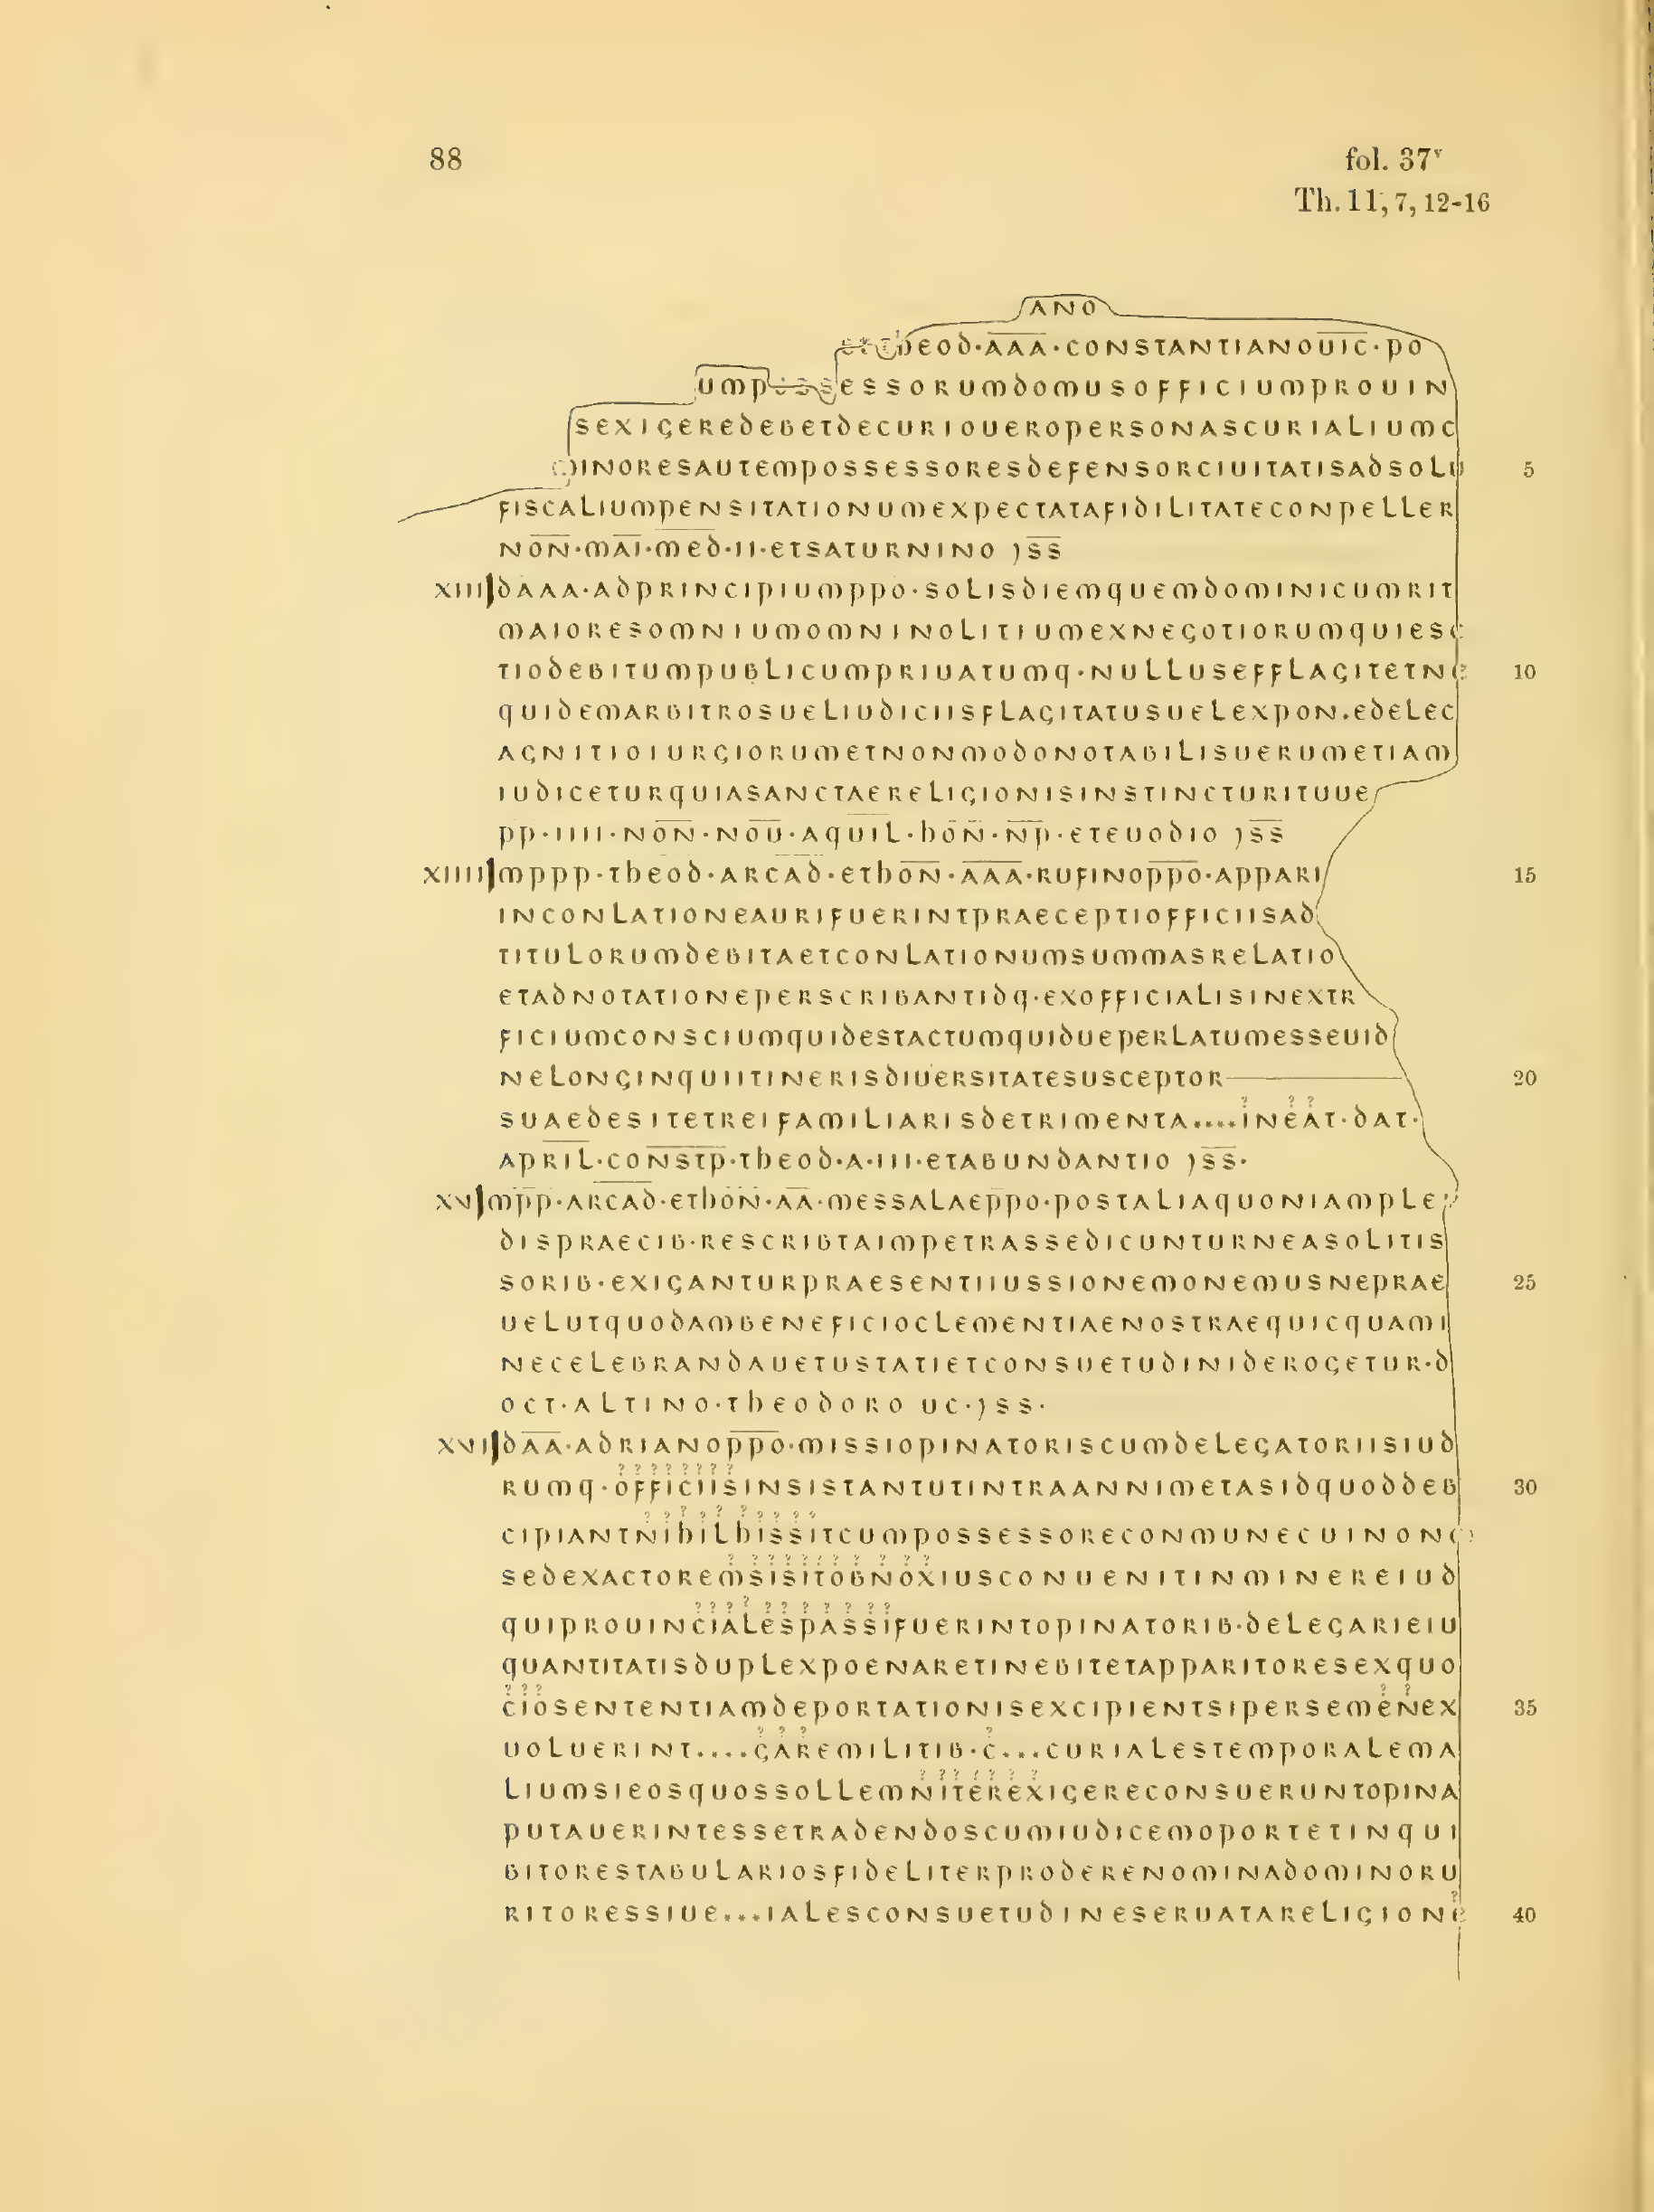 88
fol. 37v
Th. 11, 7, 12-16
ANO
ETTHEOD·AAA·CONSTANTIANOUIC·PO
UMPOSSESSORUMDOMUSOFFICIUMPROUIN
SEXIGEREDEBETDECURIOUEROPERSONASCURIALIUMC
MINORESAUTEMPOSSESSORESDEFENSORCIUITATISADSOLU 5
FISCALIUMPENSITATIONUMEXPECTATAFIDILITATECONPELLER
NON·MAI·MED·II·ETSATURNINO )SS
XIII DAAA·ADPRINCIPIUMPPO·SOLISDIEMQUEMDOMINICUMRIT
MAIORESOMNIUMOMNINOLITIUMEXNEGOTIORUMQUIESC
TIODEBITUMPUBLICUMPRIUATUMQ·NULLUSEFFLAGITETNE 10
QUIDEMARBITROSUELIUDICIISFLAGITATUSUELEXPON.EDELEC
AGNITIOIURGIORUMETNONMODONOTABILISUERUMETIAM
IUDICETURQUIASANCTAERELIGIONISINSTINCTURITUUE
PP·IIII·NON·NOU·AQUIL·HON·NP·ETEUODIO )SS
XIIII MPPP·THEOD·ARCAD·ETHON·AAA·RUFINOPPO·APPARI 15
INCONLATIONEAURIFUERINTPRAECEPTIOFFICIISAD
TITULORUMDEBITAETCONLATIONUMSUMMASRELATIO
ETADNOTATIONEPERSCRIBANTIDQ·EXOFFICIALISINEXTR
FICIUMCONSCIUMQUIDESTACTUMQUIDUEPERLATUMESSEUID
NELONGINQUIITINERISDIUERSITATESUSCEPTOR 20
SUAEDESITETREIFAMILIARISDETRIMENTA....INEAT·DAT·
APRIL·CONSTP·THEOD·A·III·ETABUNDANTIO )SS·
XV MPP·ARCAD·ETHON·AA·MESSALAEPPO·POSTALIAQUONIAMPLE
DISPRAECIB·RESCRIBTAIMPETRASSEDICUNTURNEASOLITIS
SORIB·EXIGANTURPRAESENTIIUSSIONEMONEMUSNEPRAE 25
UELUTQUODAMBENEFICIOCLEMENTIAENOSTRAEQUICQUAMI
NECELEBRANDAUETUSTATIETCONSUETUDINIDEROGETUR·D
OCT·ALTINO·THEODORO UC·)SS·
XVI DAA·ADRIANOPPO·MISSIOPINATORISCUMDELEGATORIISIUD
RUMQ·OFFICIISINSISTANTUTINTRAANNIMETASIDQUODDEB 30
CIPIANTNIHILHISSITCUMPOSSESSORECONMUNECUINONC
SEDEXACTOREMSISITOBNOXIUSCONUENITINMINEREIUD
QUIPROUINCIALESPASSIFUERINTOPINATORIB·DELEGARIEIU
QUANTITATISDUPLEXPOENARETINEBITETAPPARITORESEXQUO
CIOSENTENTIAMDEPORTATIONISEXCIPIENTSIPERSEMENEX 35
UOLUERINT....GAREMILITIB·C...CURIALESTEMPORALEMA
LIUMSIEOSQUOSSOLLEMNITEREXIGERECONSUERUNTOPINA
PUTAUERINTESSETRADENDOSCUMIUDICEMOPORTETINQUI
BITORESTABULARIOSFIDELITERPRODERENOMINADOMINORU
RITORESSIUE...IALESCONSUETUDINESERUATARELIGIONE 40